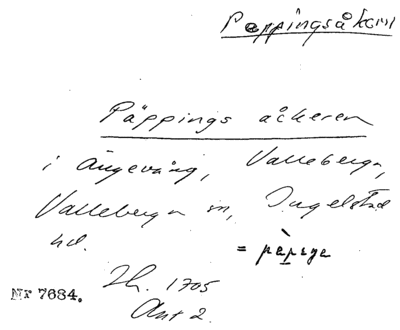 Peppingsåkern
Päppings åckeren
i Ängevång, Valleberga,
Valleberga sn, Ingelstad
hd.
= pepige
Nr 7684.
Lh. 1705
Akt 2.